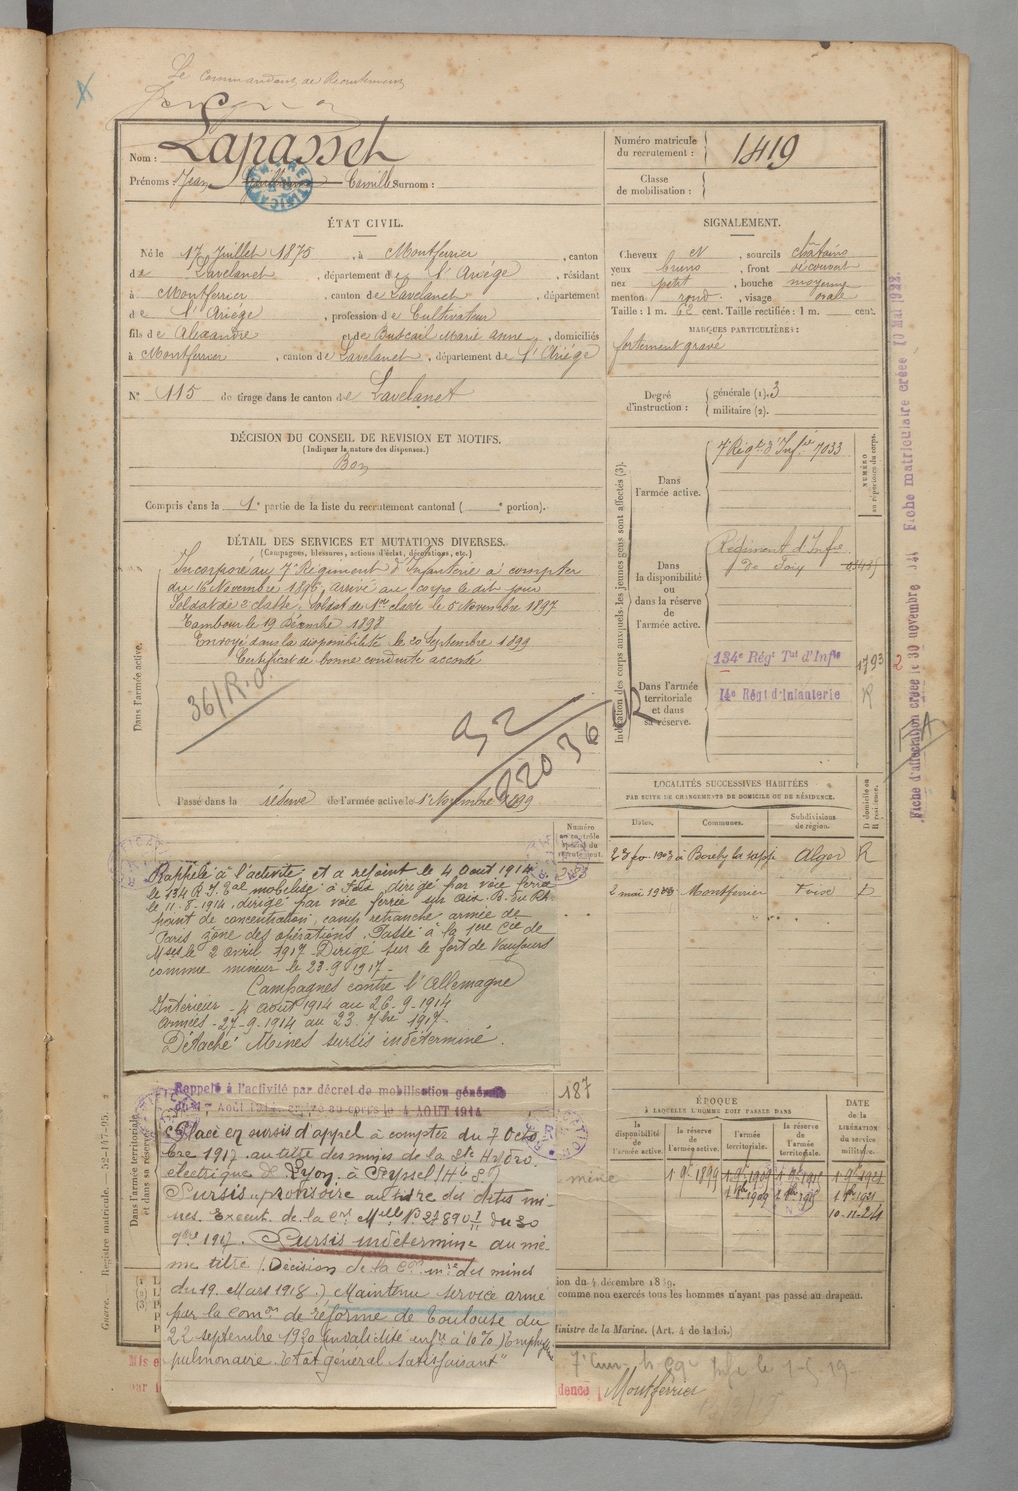 Le Commandant de Recrutement
Nom : Lapasset
Prénoms : Jean Guillaume Camille Surnom :
Numéro matricule du recrutement : 1419
Classe de mobilisation :
ÉTAT CIVIL.
Né le 17 Juillet 1875, à Montferrier, canton
de Lavelanet, département de l'Ariége, résidant
à Montferrier, canton de Lavelanet, département
de l'Ariége, profession de Cultivateur
fils de Alexandre et de Buscail Marie Anne, domiciliés
à Montferrier, canton de Lavelanet, département de l'Ariége
N° 115 de tirage dans le canton de Lavelanet
DÉCISION DU CONSEIL DE REVISION ET MOTIFS.
(Indiquer la nature des dispenses.)
Bon
Compris dans la 1e partie de la liste du recrutement cantonal ( e portion).
DÉTAIL DES SERVICES ET MUTATIONS DIVERSES.
(Campagnes, blessures, actions d'éclat, décorations, etc.)
Dans l'armée active.
Incorporé au 7e Régiment d'Infanterie à compter
du 16 Novembre 1896, arrivé au corps le dit jour
Soldat de 2e classe. Soldat de 1re classe le 5 Novembre 1897
Tambour le 19 Décembre 1898
Envoyé dans la disponibilité le 20 Septembre 1899
Certificat de bonne conduite accordé
36/R.O.
92
92036
Passé dans la réserve de l'armée active le 1er Novembre 1899
SIGNALEMENT.
Cheveux et, sourcils châtains
yeux bruns, front découvert
nez petit, bouche moyenne
menton rond, visage ovale
Taille : 1 m. 62 cent. Taille rectifiée : 1 m. cent.
MARQUES PARTICULIÈRES :
fortement gravé
Degré d'instruction : générale (1). 3
militaire (2).
Indication des corps auxquels les jeunes gens sont affectés (3).
NUMÉRO au répertoire du corps.
Dans l'armée active.
7e Régt d'Infie 7033
Dans la disponibilité ou dans la réserve de l'armée active.
Régiment d'Infie
de Foix
Dans l'armée territoriale et dans sa réserve.
134e Régt Tal d'Infie 1793
14e Régt d'Infanterie R
LOCALITÉS SUCCESSIVES HABITÉES
PAR SUITE DE CHANGEMENTS DE DOMICILE OU DE RÉSIDENCE.
Dates. Communes. Subdivisions de région. D domicile ou R résidence.
Alger R
Montferrier Foix D
Numéro au contrôle spécial du recrutement.
Rappelé à l'activité et a rejoint le 4 Août 1914
le 134 R.I. Tal mobilisé à Foix, dirigé par voie ferrée
le 11-8-1914, dirigé par voie ferrée sur
point de concentration, camp retranché armée de
Paris zone des opérations. Passé à la 1ere Cie de
le 2 avril 1917. Dirigé sur le fort de Vaujours
comme mineur le 23-9-1917.
Campagnes contre l'Allemagne
Intérieur - 4 août 1914 au 26-9-1914
Armées - 27-9-1914 au 23 7bre 1917.
Détaché Mines sursis indéterminé.
Rappelé à l'activité par décret de mobilisation générale
du 1er Août 1914, arrivé au corps le 4 AOUT 1914
187
Placé en sursis d'appel à compter du 7 Octo
bre 1917 au titre des mines de la Sté Hydro
électrique de Lyon, à Seyssel (Hte S.)
Sursis provisoire au titre des dites mi-
nes. du 30
9bre 1917. Sursis indéterminé au mê-
me titre (Décision de la des mines
du 19 Mars 1918.) Maintenu service armé
par la Comon de réforme de Toulouse du
22 septembre 1920 invalidité infre à 10% "Emphysème
pulmonaire. Etat général satisfaisant"
mine
Dans l'armée territoriale et dans sa réserve.
ÉPOQUE
À LAQUELLE L'HOMME DOIT PASSER DANS
la disponibilité de l'armée active. la réserve de l'armée active. l'armée territoriale. la réserve de l'armée territoriale.
DATE de la LIBÉRATION du service militaire.
1 9e 1899 1 9e 1909 1 9e 1915 1 9e 1921
1 8bre 1909 1 8bre 1915 1 8bre 1921
10-11-24
ion du 4 décembre 1889.
comme non exercés tous les hommes n'ayant pas passé au drapeau.
Ministre de la Marine. (Art. 4 de la loi.)
Mis e
par
dence
Montferrier
Fiche d'affectation créée le 30 novembre 14 Fiche matriculaire créée 10 Mai 1922.
Guerre. Registre matricule. — 52-147-95.